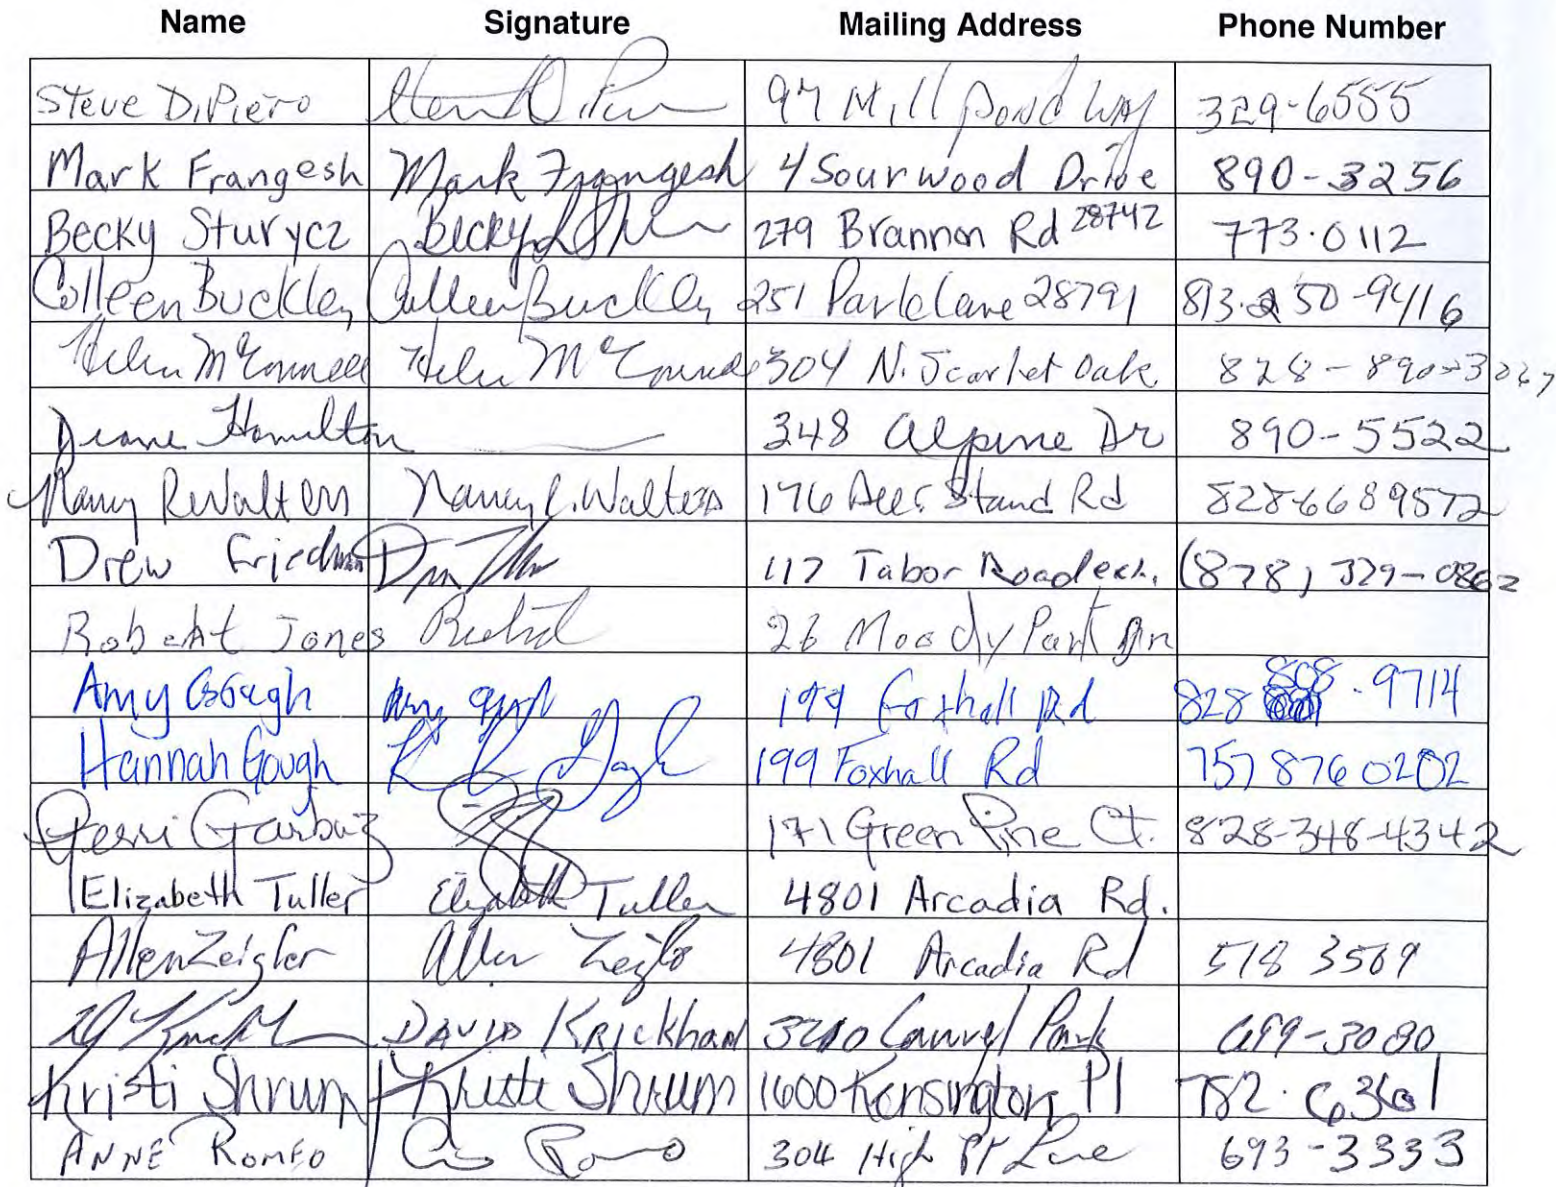 Name Signature Mailing Address Phone Number
Steve DiPiero 97 Mill Pond Way 329-6555
Mark Frangesh Mark Frangesh 4 Sourwood Drive 890-3256
Becky Sturycz Becky 279 Brannon Rd 28742 773.0112
Colleen Buckley Colleen Buckley 251 Park Lane 28791 813-250-9416
Helen McConnell Helen McConnell 304 N. Scarlet Oak 828-890-3267
Diane Hamilton 348 Alpine Dr 890-5522
Nancy R Walters Nancy R. Walters 176 Deer Stand Rd 828-6689572
Drew Friedman 117 Tabor Road (828) 329-0862
Robert Jones 26 Moody Park Dr
Amy Gough Amy Gough 199 Foxhall Rd 828 808-9714
Hannah Gough Gough 199 Foxhall Rd 757 876 0202
Gerri Garbuz 171 Green Pine Ct. 828-348-4342
Elizabeth Tuller Elizabeth Tuller 4801 Arcadia Rd.
Allen Zeigler Allen Zeigler 4801 Arcadia Rd 518 3569
DAVID KRICKHAN Laurel Park 699-3080
Kristi Shrum Kristi Shrum 1600 Kensington Pl 782.6361
ANNE ROMEO 304 High Pt Lane 693-3333